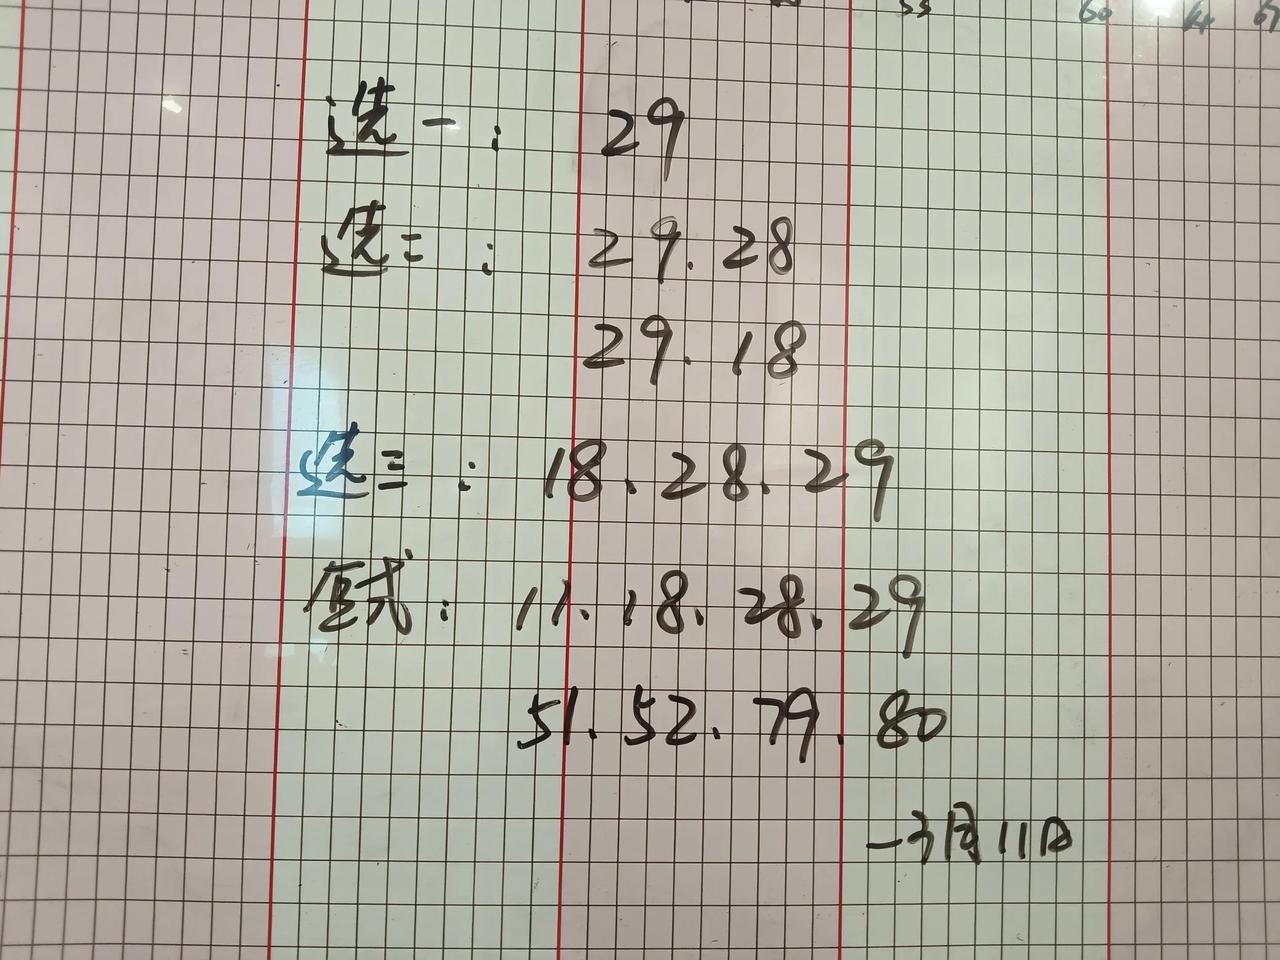 55 60 64 67
选一: 29
选二: 29.28
29.18
选三: 18.28.29
复式: 11.18.28.29
51.52.79.80
—3月11日